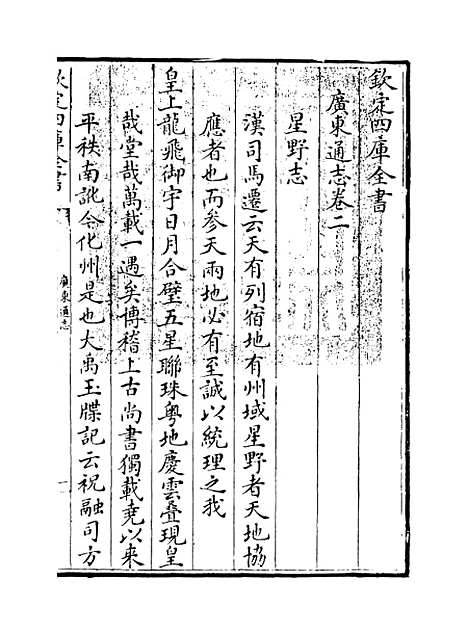 欽定四庫全書
廣東通志卷二
星野志
漢司馬遷云天有列宿地有州域星野者天地協
應者也而參天兩地必有至誠以統理之我
皇上龍飛御宇日月合璧五星聯珠粤地慶雲疊現皇
哉堂哉萬載一遇矣博稽上古尚書獨載堯以來
平秩南訛今化州是也大禹玉牒記云祝融司方
欽定四庫全書
廣東通志
一